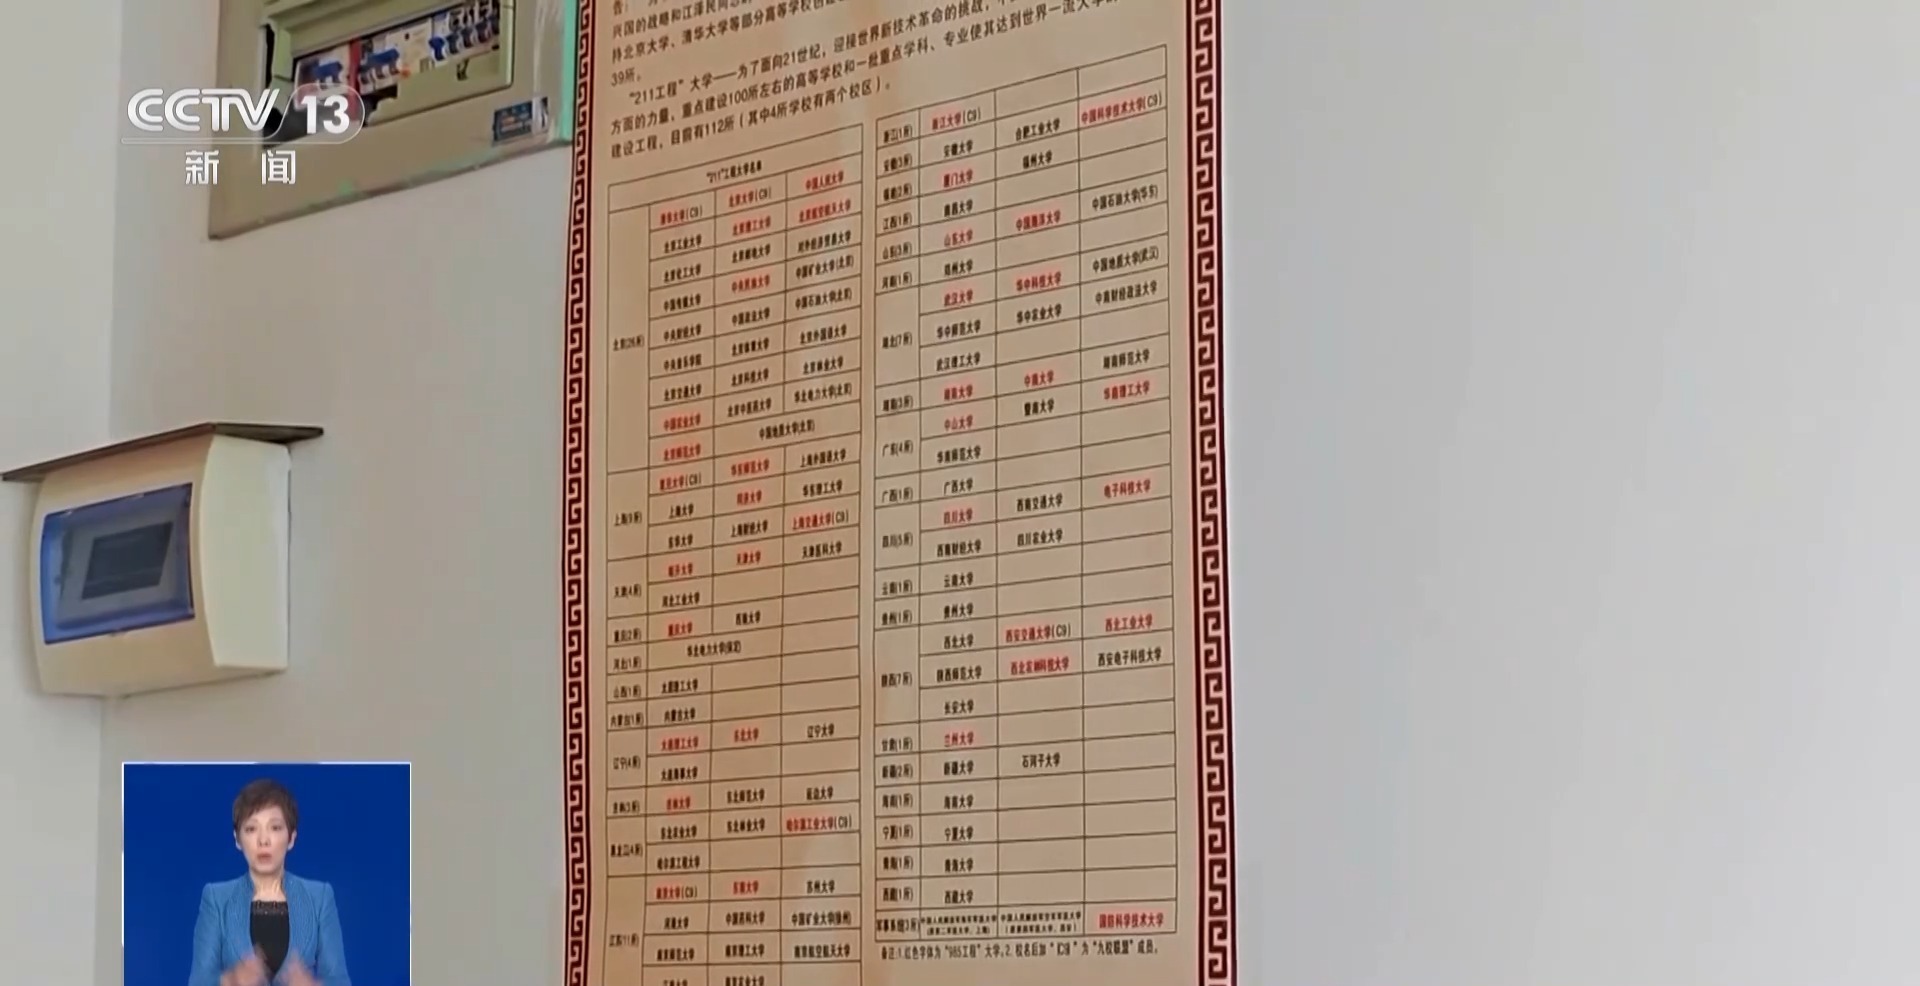 CCTV 13
新闻
兴国的战略和江泽民同志
持北京大学、清华大学等部分高等学校创建
39所。
“211工程”大学——为了面向21世纪，迎接世界新技术革命的挑战，
方面的力量，重点建设100所左右的高等学校和一批重点学科、专业使其达到世界一流大学的
建设工程，目前有112所（其中4所学校有两个校区）。
“211”工程大学名单
北京(26所) 清华大学(C9) 北京大学(C9) 中国人民大学
北京工业大学 北京理工大学 北京航空航天大学
北京化工大学 北京邮电大学 对外经济贸易大学
中国传媒大学 中央民族大学 中国矿业大学(北京)
中央财经大学 中国政法大学 中国石油大学(北京)
中央音乐学院 北京体育大学 北京外国语大学
北京交通大学 北京科技大学 北京林业大学
中国农业大学 北京中医药大学 华北电力大学(北京)
北京师范大学 中国地质大学(北京)
上海(9所) 复旦大学(C9) 华东师范大学 上海外国语大学
上海大学 同济大学 华东理工大学
东华大学 上海财经大学 上海交通大学(C9)
天津(4所) 南开大学 天津大学 天津医科大学
河北工业大学
重庆(2所) 重庆大学 西南大学
河北(1所) 华北电力大学(保定)
山西(1所) 太原理工大学
内蒙古(1所) 内蒙古大学
辽宁(4所) 大连理工大学 东北大学 辽宁大学
大连海事大学
吉林(3所) 吉林大学 东北师范大学 延边大学
黑龙江(4所) 东北农业大学 东北林业大学 哈尔滨工业大学(C9)
哈尔滨工程大学
江苏(11所) 南京大学(C9) 东南大学 苏州大学
河海大学 中国药科大学 中国矿业大学(徐州)
南京师范大学 南京理工大学 南京航空航天大学
江南大学 南京农业大学
浙江(1所) 浙江大学(C9)
安徽(3所) 安徽大学 合肥工业大学 中国科学技术大学(C9)
福建(2所) 厦门大学 福州大学
江西(1所) 南昌大学
山东(3所) 山东大学 中国海洋大学 中国石油大学(华东)
河南(1所) 郑州大学
湖北(7所) 武汉大学 华中科技大学 中国地质大学(武汉)
华中师范大学 华中农业大学 中南财经政法大学
武汉理工大学
湖南(3所) 湖南大学 中南大学 湖南师范大学
广东(4所) 中山大学 暨南大学 华南理工大学
华南师范大学
广西(1所) 广西大学
四川(5所) 四川大学 西南交通大学 电子科技大学
西南财经大学 四川农业大学
云南(1所) 云南大学
贵州(1所) 贵州大学
陕西(7所) 西北大学 西安交通大学(C9) 西北工业大学
陕西师范大学 西北农林科技大学 西安电子科技大学
长安大学
甘肃(1所) 兰州大学
新疆(2所) 新疆大学 石河子大学
海南(1所) 海南大学
宁夏(1所) 宁夏大学
青海(1所) 青海大学
西藏(1所) 西藏大学
军事系统(3所) 中国人民解放军海军军医大学 中国人民解放军空军军医大学 国防科学技术大学
备注:1.红色字体为“985工程”大学。2.校名后加“(C9)”为“九校联盟”成员。